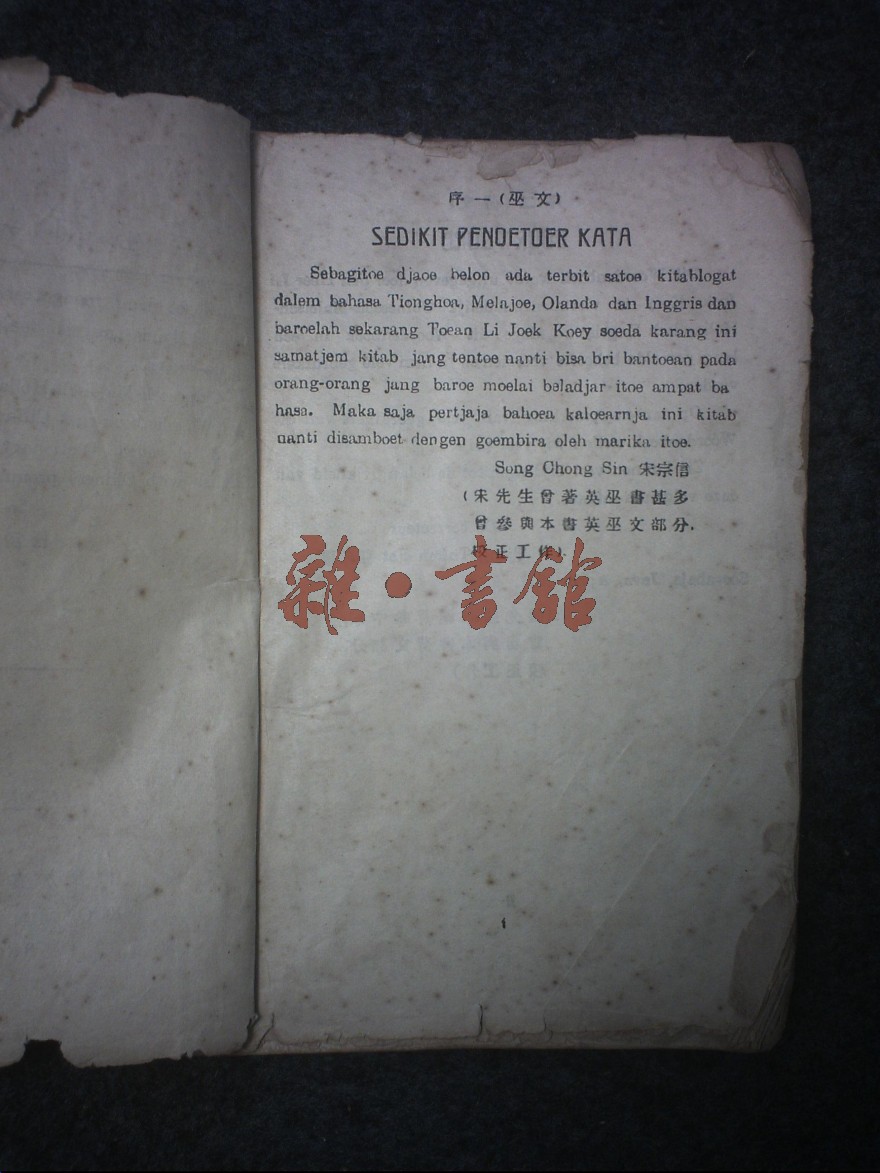 序一(巫文)
SEDIKIT PENOETOER KATA
Sebagitoe djaoe belon ada terbit satoe kitablogat
dalem bahasa Tionghoa, Melajoe, Olanda dan Inggris dan
baroelah sekarang Toean Li Joek Koey soeda karang ini
samatjem kitab jang tentoe nanti bisa bri bantoean pada
orang-orang jang baroe moelai beladjar itoe ampat ba
hasa. Maka saja pertjaja bahoea kaloearnja ini kitab
nanti disamboet dengen goembira oleh marika itoe.
Song Chong Sin 宋宗信
(宋先生曾著英巫書甚多
曾參與本書英巫文部分.
校正工作).
雜·書館
1